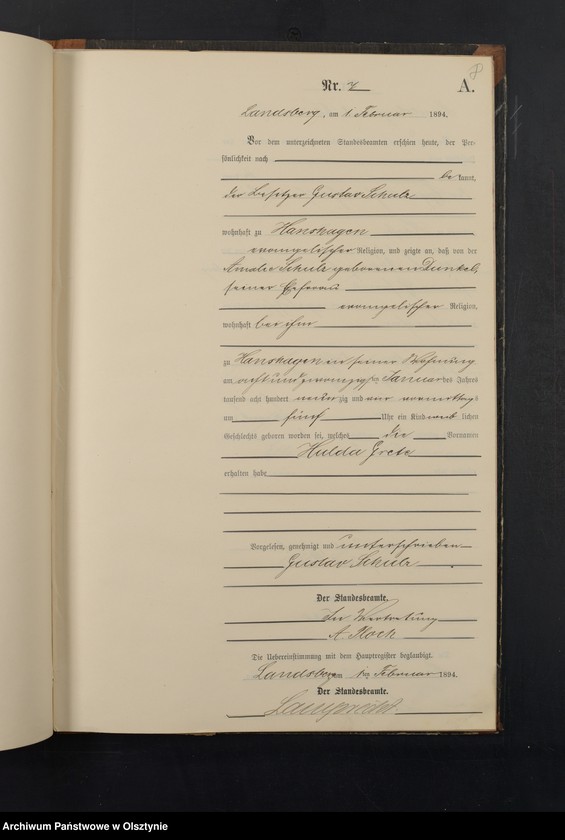 8
Nr. 7 A.
Landsberg, am 1 Februar 1894.
Vor dem unterzeichneten Standesbeamten erschien heute, der Per-
sönlichkeit nach
be kannt,
der Besitzer Gustav Schulz
wohnhaft zu Hanshagen
evangelischer Religion, und zeigte an, daß von der
Amalie Schulz geborenen Dunkel,
seiner Ehefrau
evangelischer Religion,
wohnhaft bei ihm
zu Hanshagen in seiner Wohnung
am achtundzwanzigsten Januar des Jahres
tausend acht hundert neun zig und vier vormittags
um fünf Uhr ein Kind weib lichen
Geschlechts geboren worden sei, welches die Vornamen
Hulda Grete
erhalten habe
Vorgelesen, genehmigt und unterschrieben
Gustav Schulz
Der Standesbeamte.
In Vertretung
A.
Die Uebereinstimmung mit dem Hauptregister beglaubigt.
Landsberg am 1ten Februar 1894.
Der Standesbeamte.
Lamprecht
Archiwum Państwowe w Olsztynie